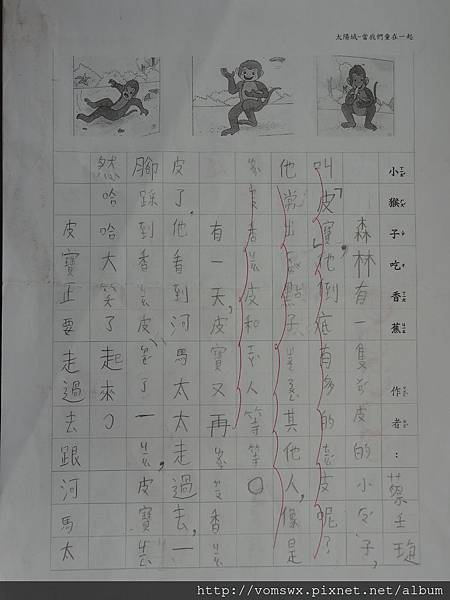 太陽城-當我們童在一起
小猴子吃香蕉 作者：蔡
森林有一隻皮的小子，
叫「皮寶」，他到底有多的皮呢？
他常出點子其他人，像是
香ㄐㄧㄠ皮和人等等。
有一天，皮寶又再香ㄐㄧㄠ
皮了，他看到河馬太太走過去，一
腳踩到香ㄐㄧㄠ皮，了一ㄐㄧㄠ，皮寶
然哈哈大笑了起來。
皮寶正要走過去跟河馬太
http://vomswx.pixnet.net/album